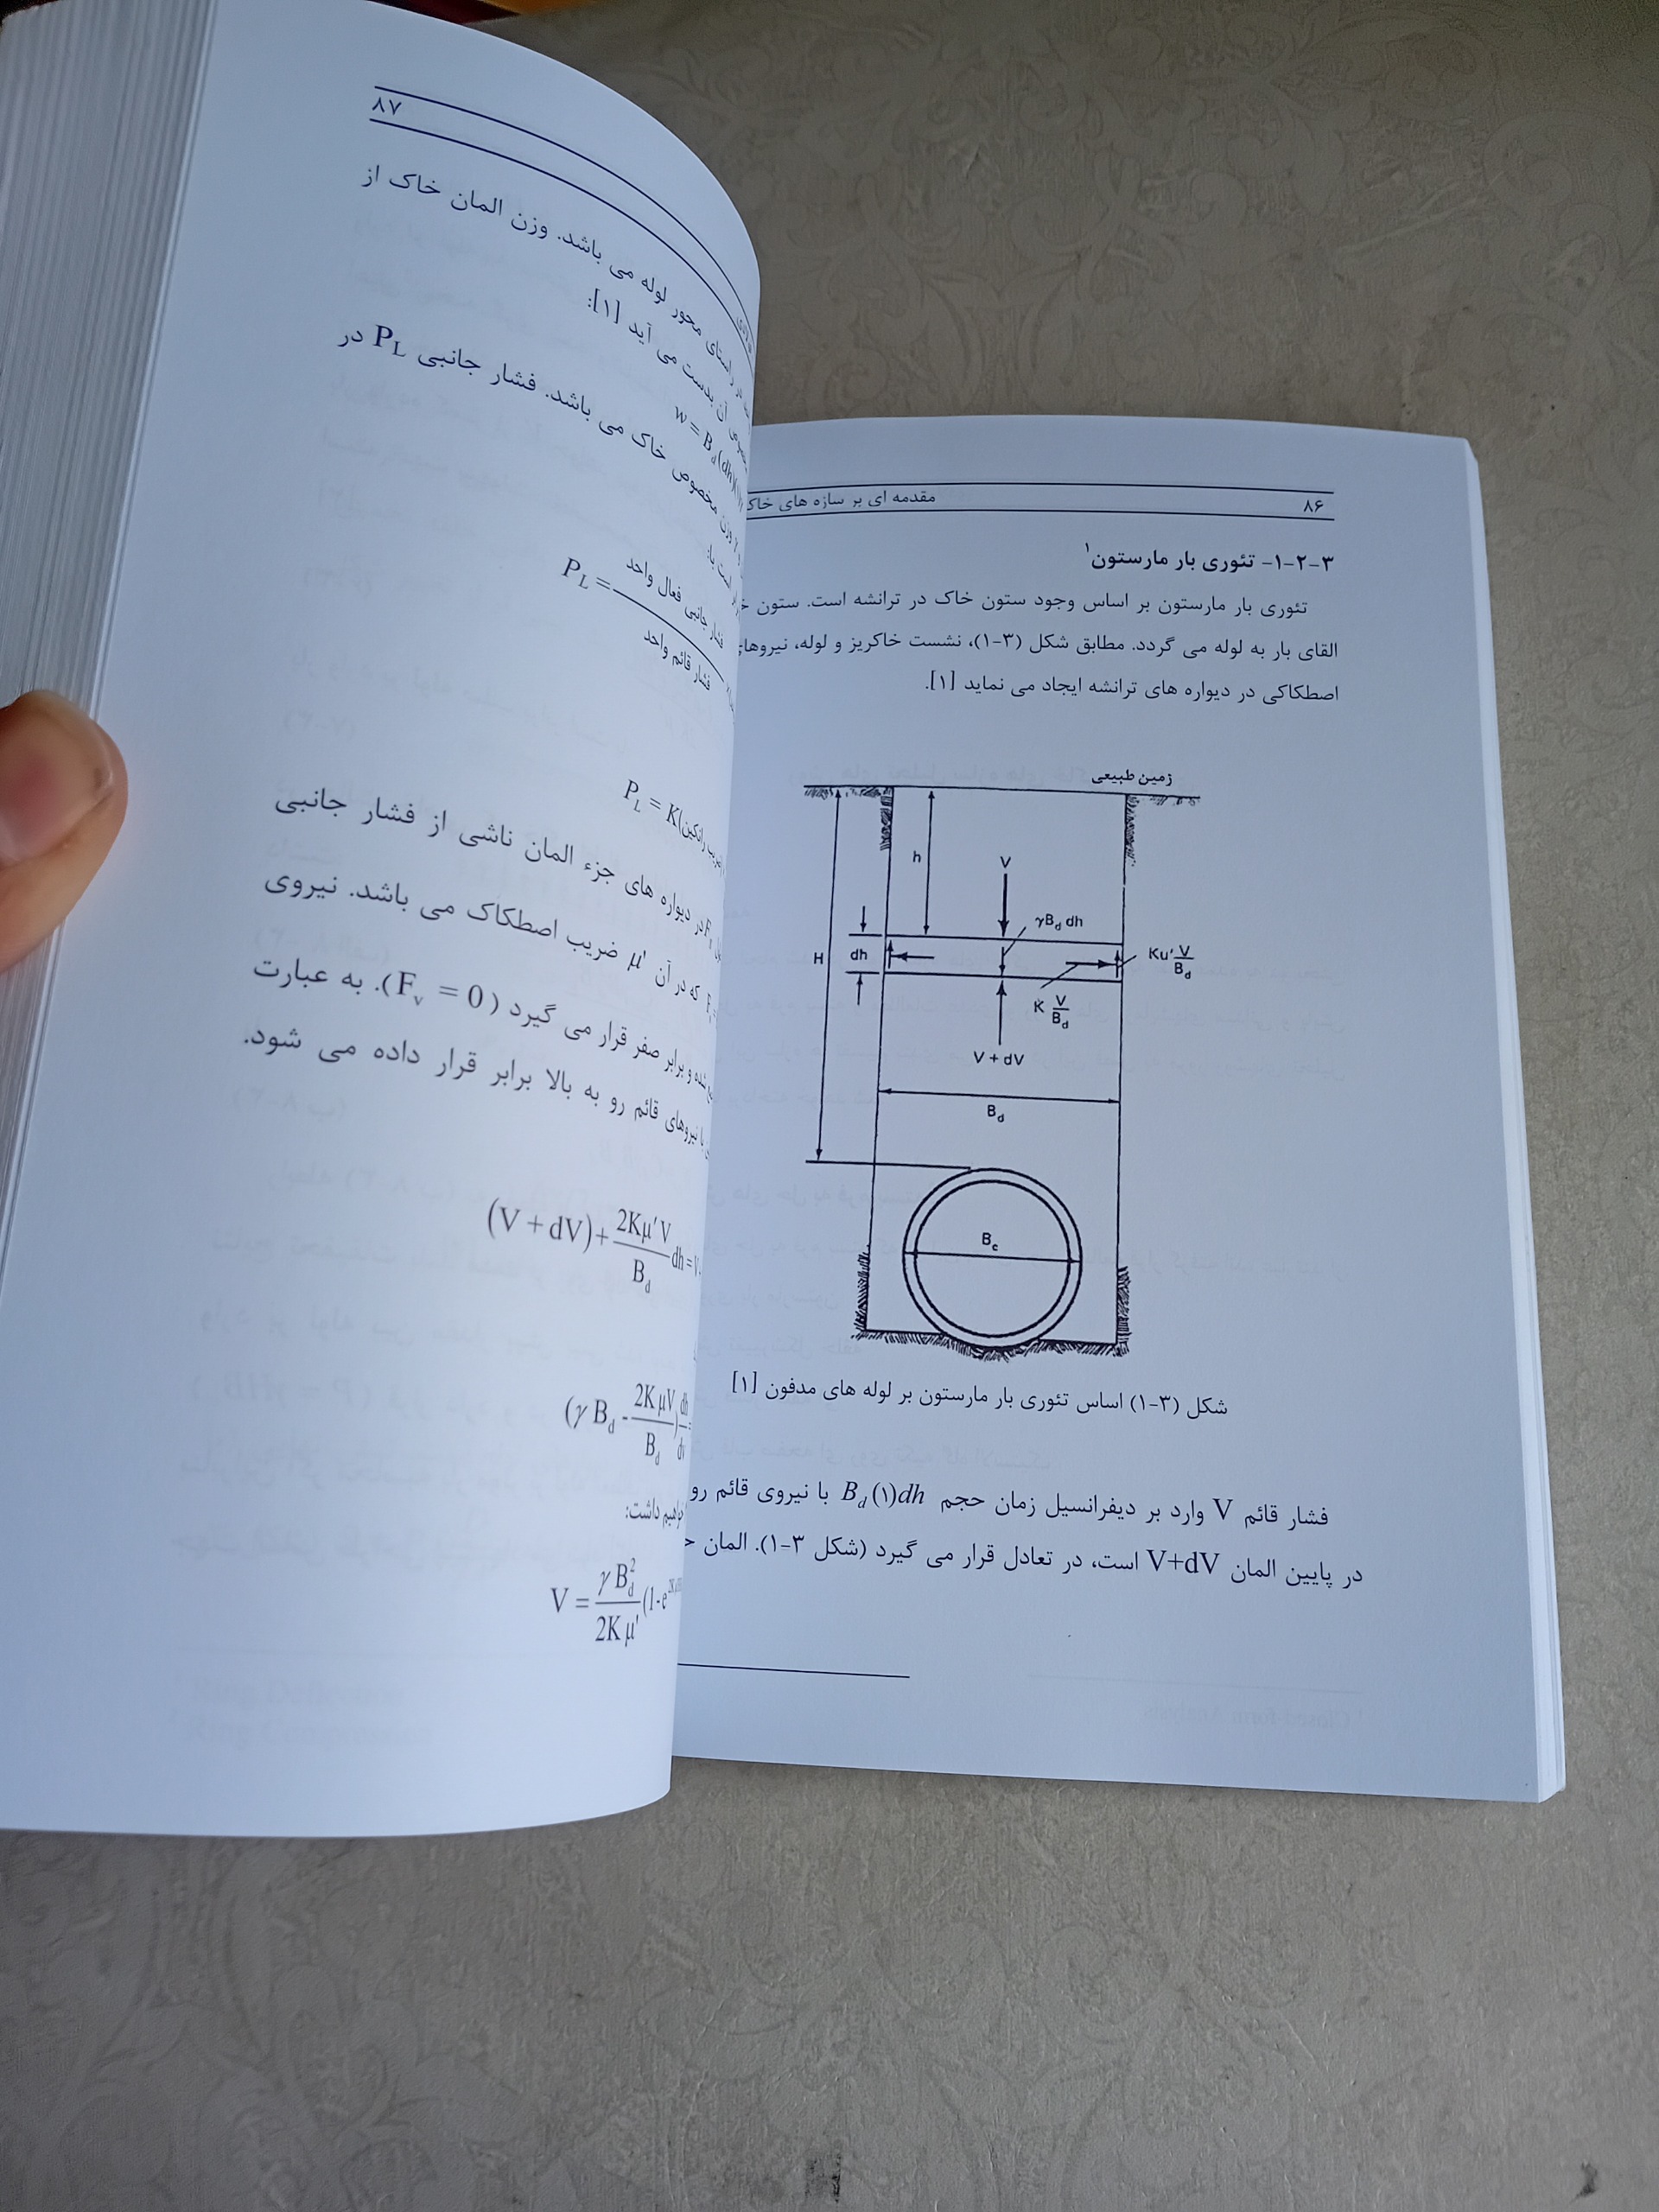 ۸۶
مقدمه ای بر سازه های خاک
۳-۲-۱- تئوری بار مارستون۱
تئوری بار مارستون بر اساس وجود ستون خاک در ترانشه است. ستون
القای بار به لوله می گردد. مطابق شکل (۳-۱)، نشست خاکریز و لوله، نیروهای
اصطکاکی در دیواره های ترانشه ایجاد می نماید [۱].
زمین طبیعی
h
V
γB_d dh
H
dh
Ku' V/B_d
K V/B_d
V + dV
B_d
B_c
شکل (۳-۱) اساس تئوری بار مارستون بر لوله های مدفون [۱]
فشار قائم V وارد بر دیفرانسیل زمان حجم B_d (۱)dh با نیروی قائم رو
در پایین المان V+dV است، در تعادل قرار می گیرد (شکل ۳-۱). المان
۸۷
راستای محور لوله می باشد. وزن المان خاک از
آن بدست می آید [۱]:
w = B_d (dh)
وزن مخصوص خاک می باشد. فشار جانبی P_L در
است با:
P_L = فشار جانبی فعال واحد / فشار قائم واحد
P_L = K(ضریب رانکین
در دیواره های جزء المان ناشی از فشار جانبی
که در آن μ' ضریب اصطکاک می باشد. نیروی
شده و برابر صفر قرار می گیرد (F_v = 0). به عبارت
با نیروهای قائم رو به بالا برابر قرار داده می شود.
(V + dV) + 2Kμ'V/B_d dh =
(γ B_d - 2KμV/B_d) dh/dv
خواهیم داشت:
V = γ B_d²/2K μ' (1-e